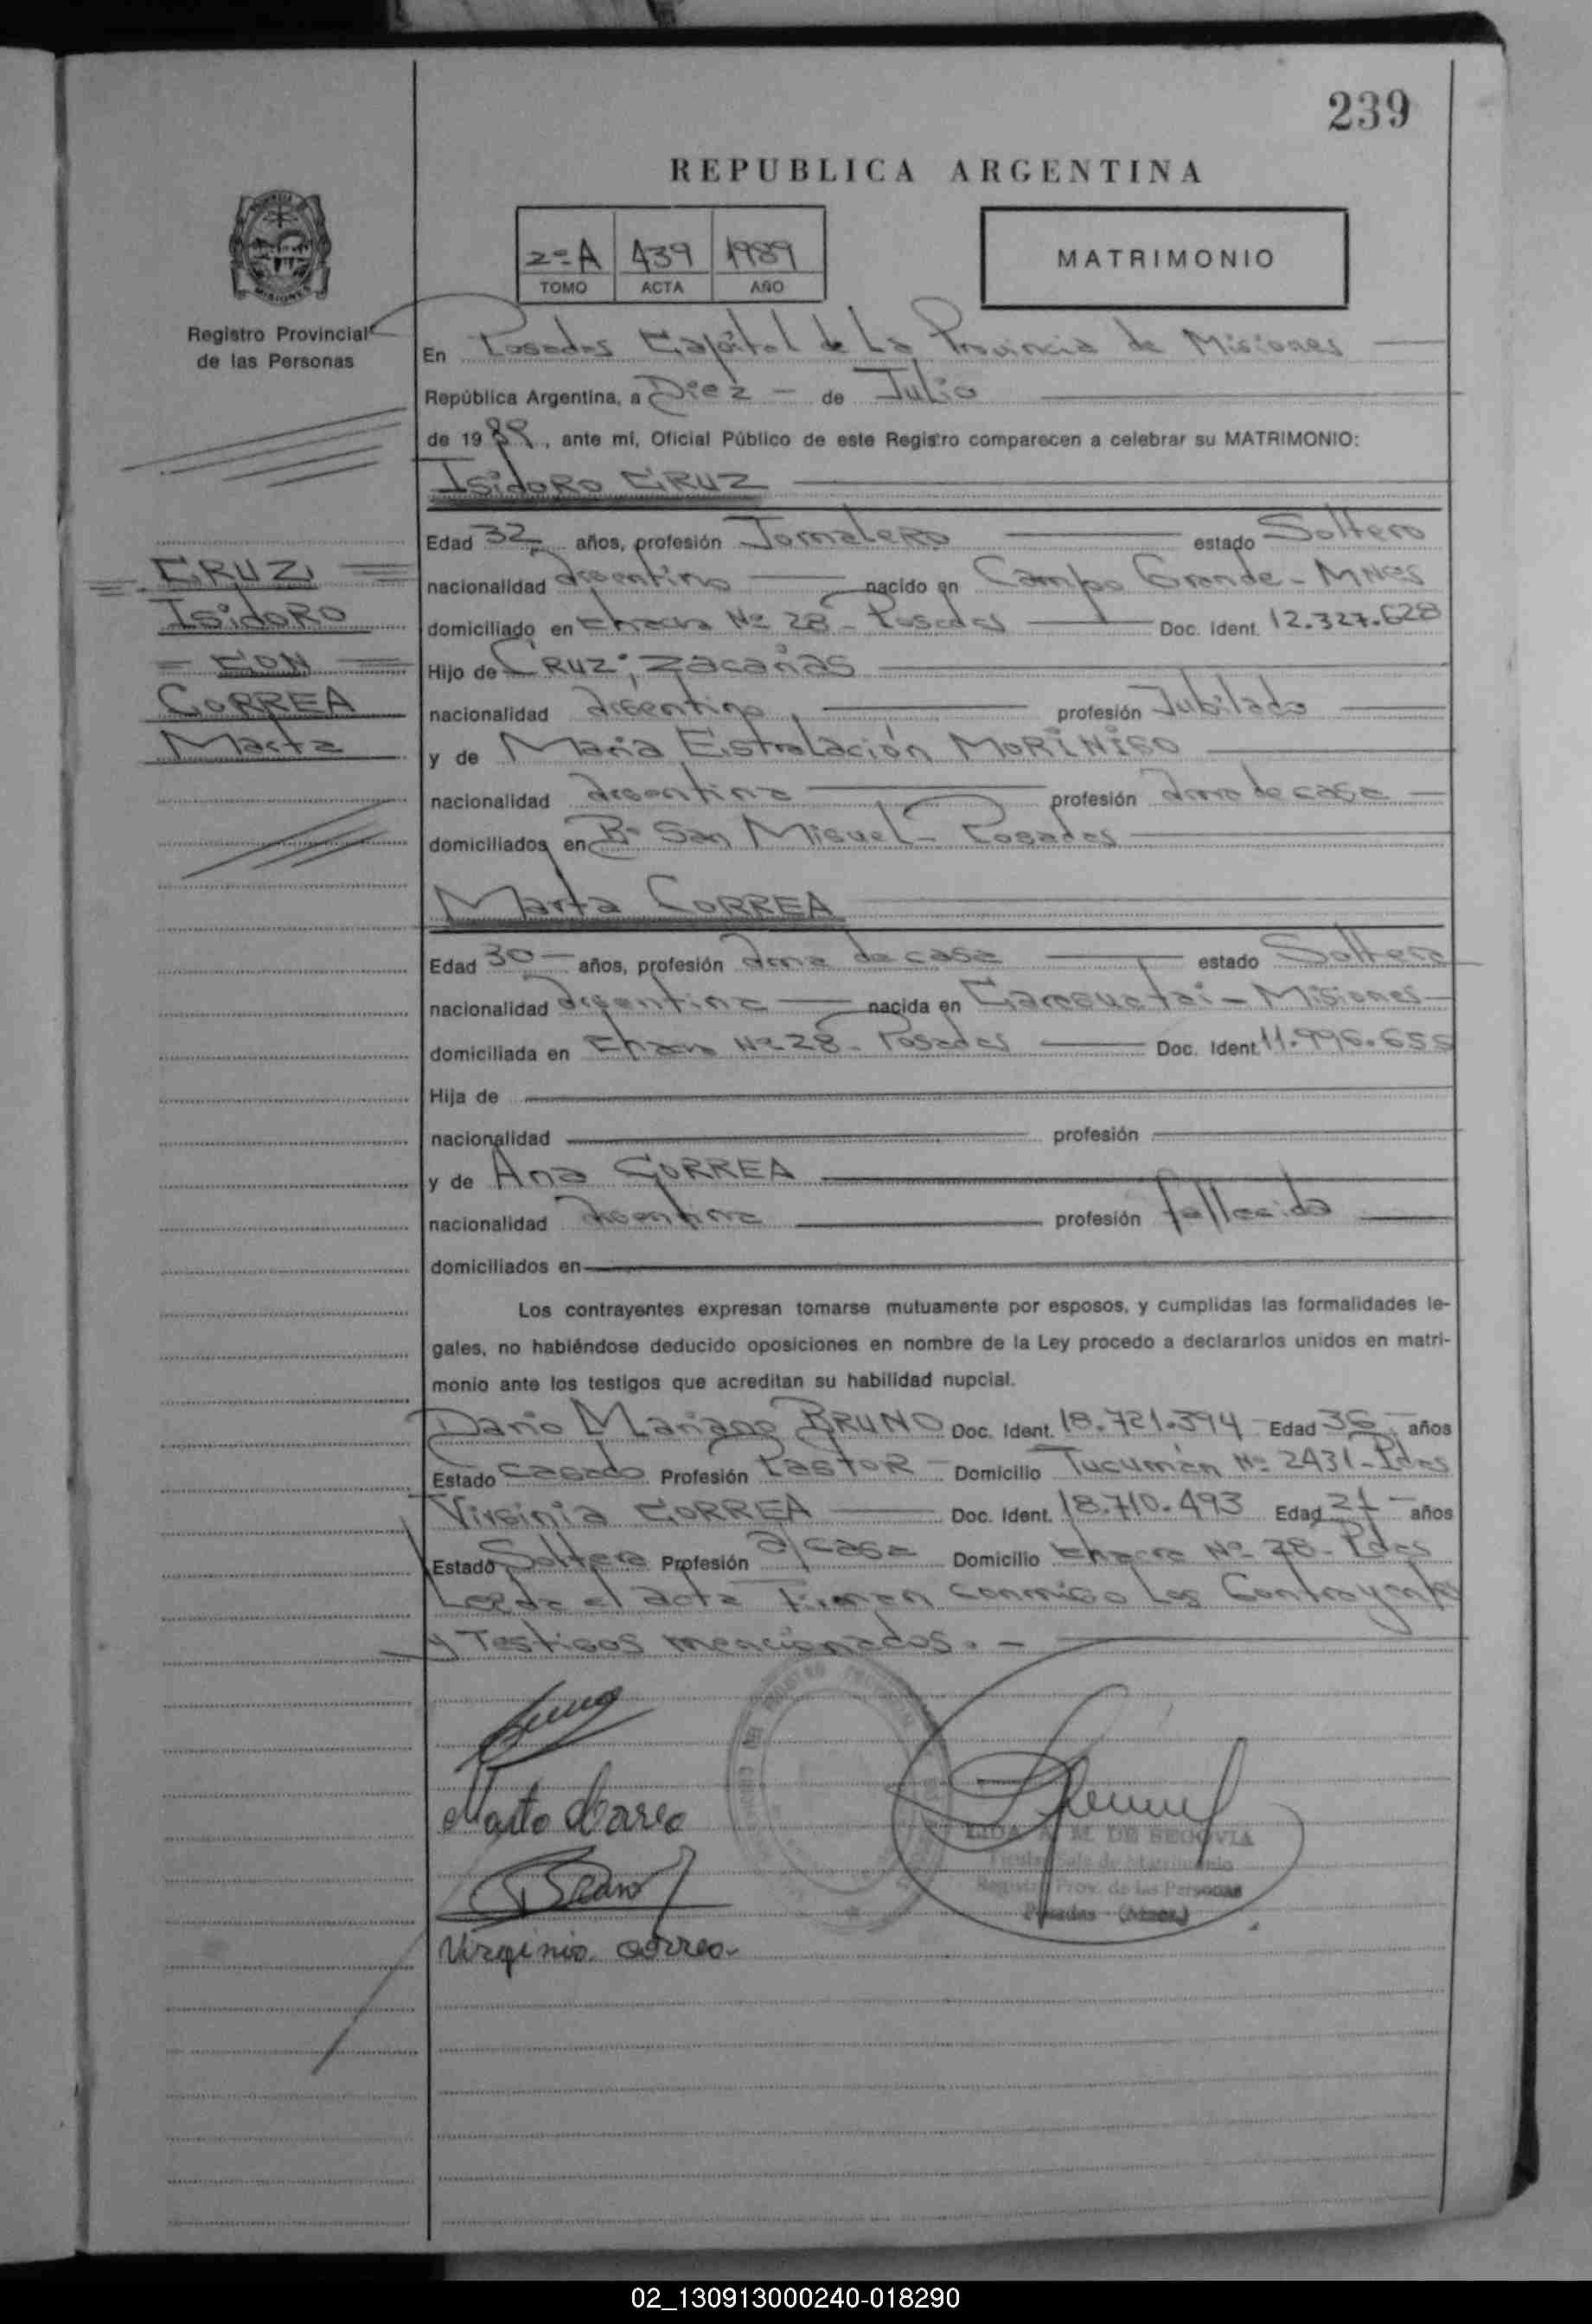 239
REPUBLICA ARGENTINA
2º A 439 1989
TOMO ACTA AÑO
MATRIMONIO
Registro Provincial
de las Personas
En Posadas Capital de La Provincia de Misiones
República Argentina, a Diez - de Julio
de 1989, ante mi, Oficial Público de este Registro comparecen a celebrar su MATRIMONIO:
Isidoro CRUZ
Edad 32 años, profesión Jornalero estado Soltero
nacionalidad argentino nacido en Campo Grande - Mnes
domiciliado en Chacra Nº 28 - Posadas Doc. Ident. 12.327.628
Hijo de CRUZ; Zacarías
nacionalidad argentino profesión Jubilado
y de María Estralación MORINIGO
nacionalidad argentina profesión ama de casa
domiciliados en Bº San Miguel - Posadas
CRUZ
Isidoro
= CON =
CORREA
Marta
Marta CORREA
Edad 30 años, profesión ama de casa estado Soltera
nacionalidad argentina nacida en - Misiones
domiciliada en Chacra Nº 28 - Posadas Doc. Ident. 11.996.655
Hija de
nacionalidad profesión
y de Ana CORREA
nacionalidad argentina profesión fallecida
domiciliados en
Los contrayentes expresan tomarse mutuamente por esposos, y cumplidas las formalidades le-
gales, no habiéndose deducido oposiciones en nombre de la Ley procedo a declararlos unidos en matri-
monio ante los testigos que acreditan su habilidad nupcial.
Dario Mariano BRUNO Doc. Ident. 18.721.394 Edad 36 años
Estado Casado Profesión Pastor Domicilio Tucumán Nº 2431 - Pdas
Virginia CORREA Doc. Ident. 18.710.493 Edad 21 años
Estado Soltera Profesión a/casa Domicilio Chacra Nº 28 - Pdas
Leída el acta Firman conmigo los Contrayentes
y Testigos mencionados. -
Marta Correa
Virginia Correa
LIDA A. M. DE SEGOVIA
Sala de Matrimonio
Registro Prov. de las Personas
Posadas (Mnes.)
02_130913000240-018290